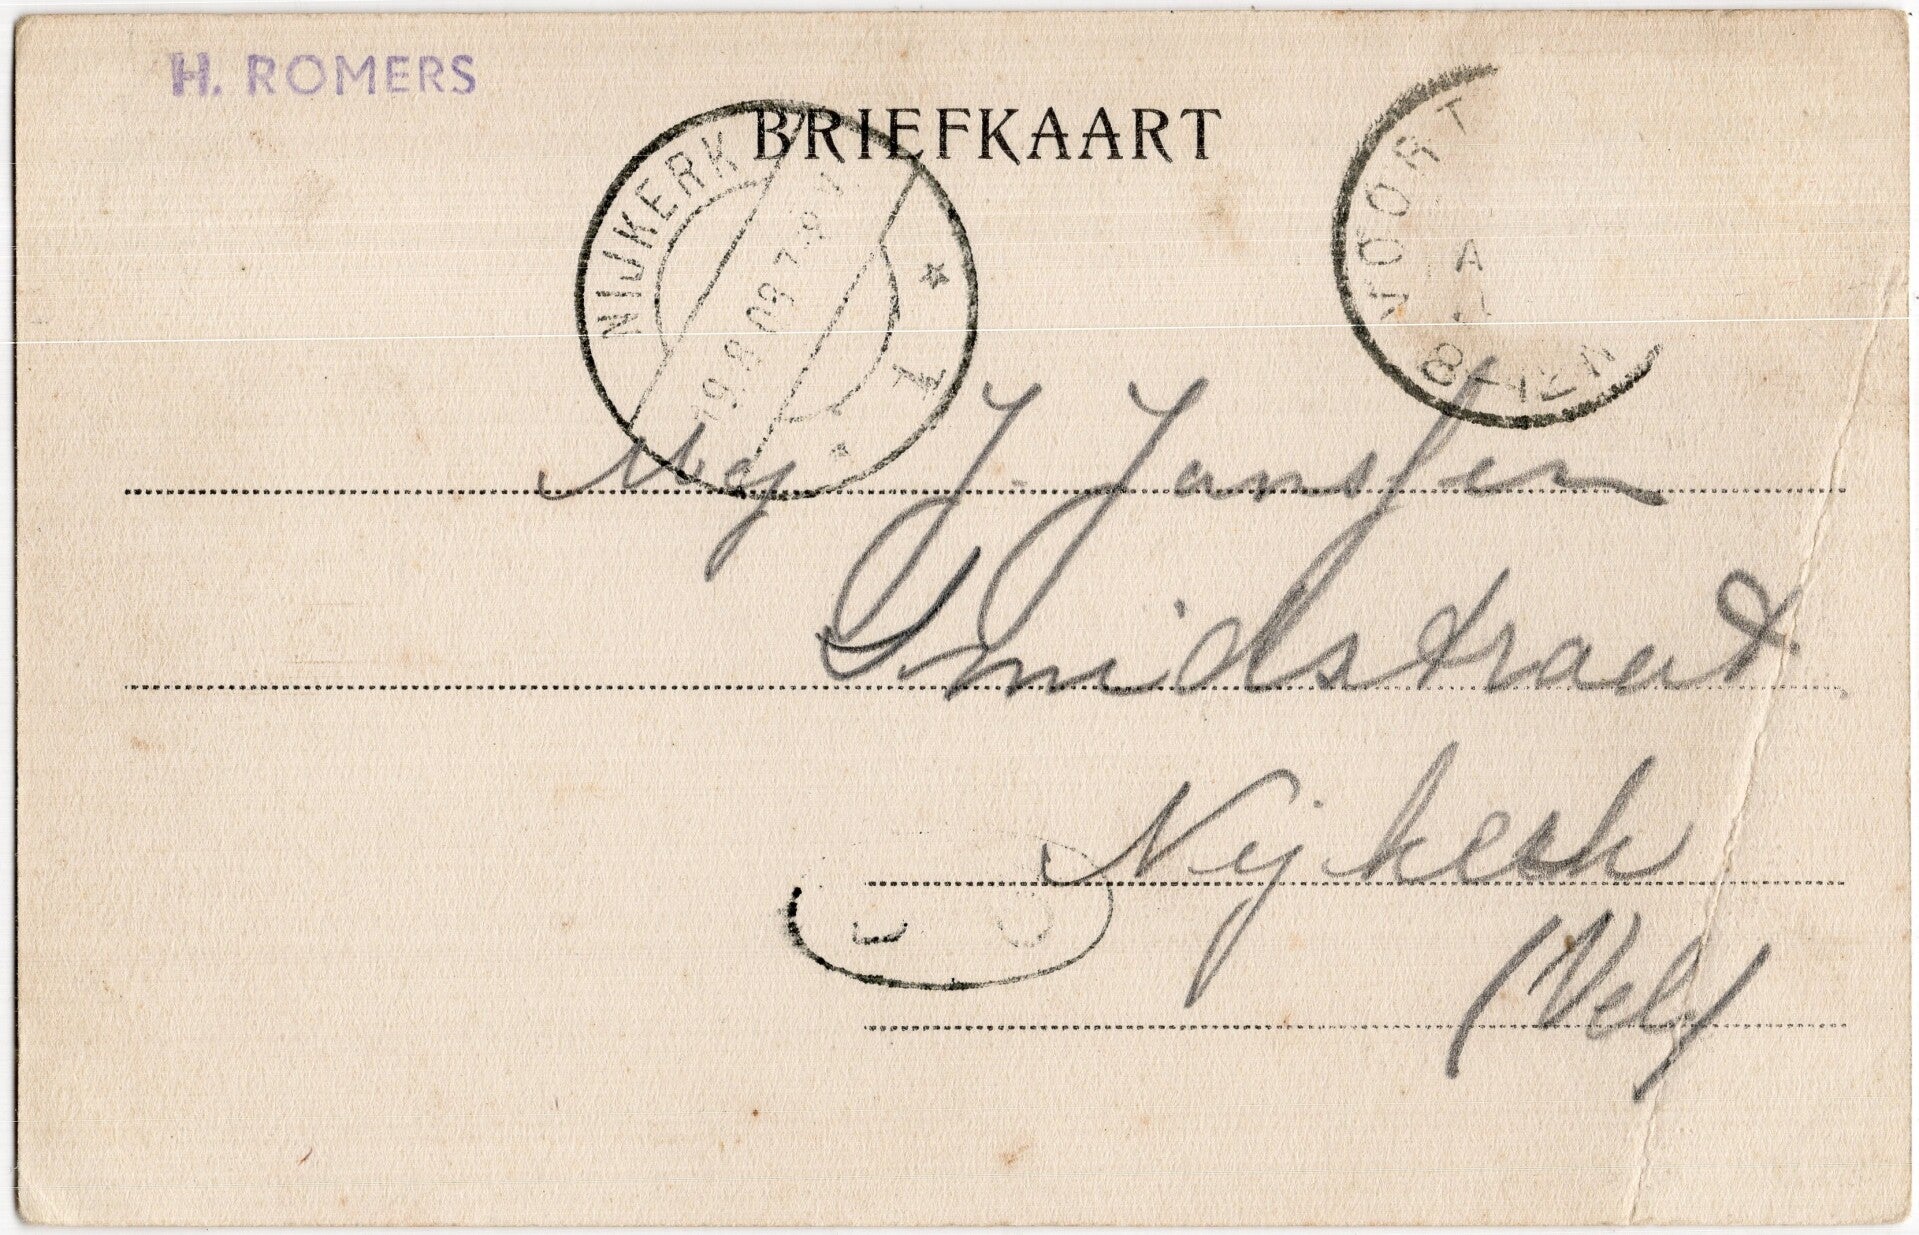 H. ROMERS
BRIEFKAART
NIJKERK 1
19.8.09 7-8V
VOORT
Mej J. Janssen
Smidstraat
Nijkerk
(Vel)